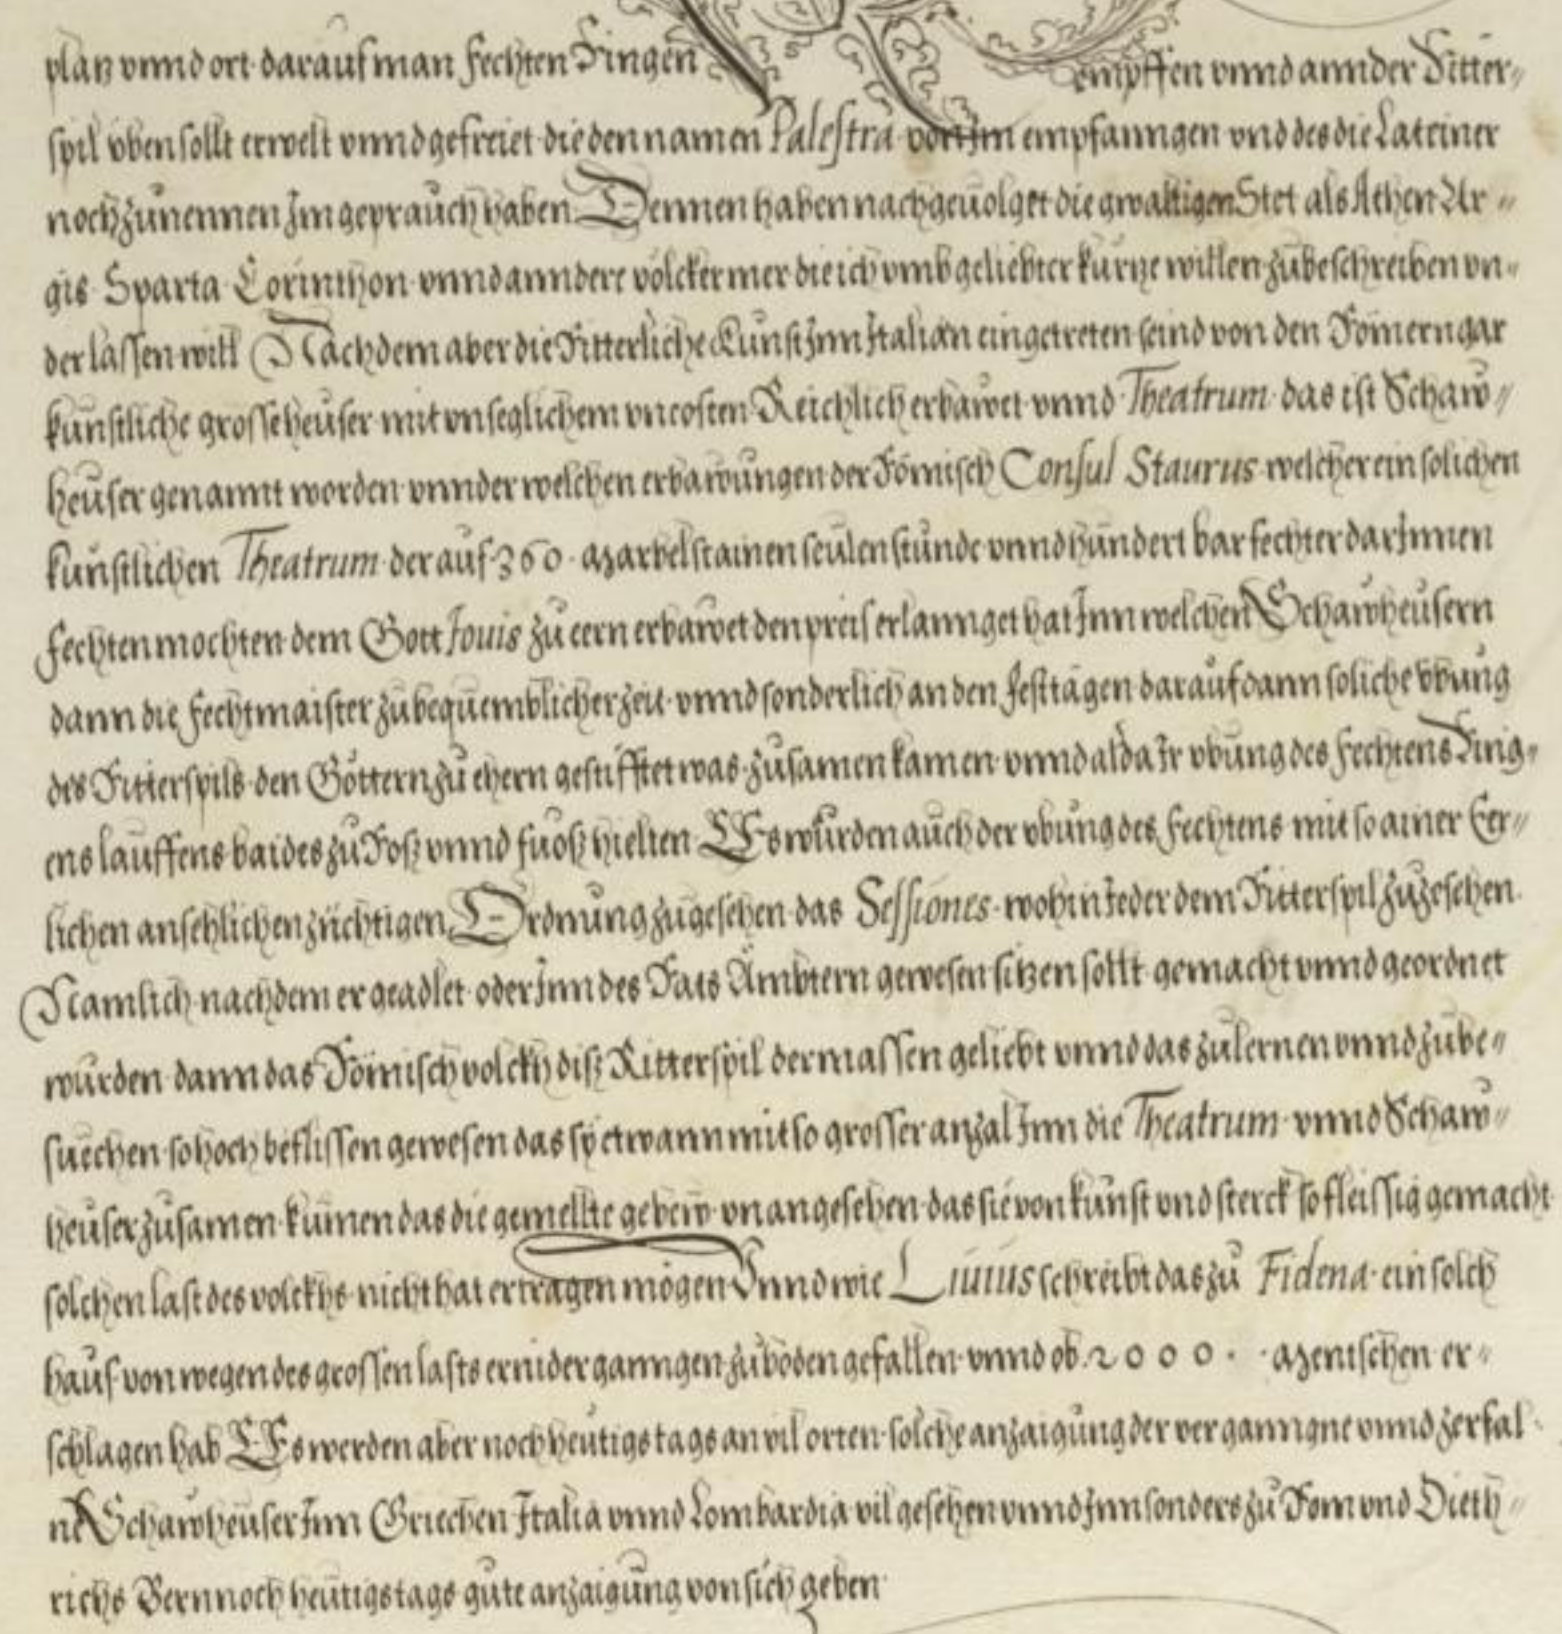 platz vnnd ort darauf man fechten Ringen kempffen vnnd annder Ritter-
spil vben sollt erwelt vnnd gefreiet die den namen Palestra von Im empfanngen vnd des die Lateiner
noch zu nennen Im geprauch haben Dennen haben nachgeuolget die gwaltigen Stet als Athen Ar-
gis Sparta Corinthon vnnd anndere völcker mer die ich vmb geliebter kürtze willen zubeschreiben vn-
der lassen will Nachdem aber die Ritterliche Kunst Inn Italian eingetreten seind von den Römern gar
künstliche grosse heuser mit vnseglichem vncosten Reichlich erbawet vnnd Theatrum das ist Schaw-
heuser genannt worden vnnder welchen erbawungen der Römisch Consul Staurus welcher ein solichen
künstlichen Theatrum der auf 360 Marbelstainen seulen stunde vnnd hundert bar fechter darInnen
fechten mochten dem Gott Iouis zu eern erbawet den preis erlannget hat Inn welchen Schawheusern
dann die fechtmaister zu bequemblicher zeit vnnd sonderlich an den festtägen darauf dann soliche vbung
des Ritterspils den Göttern zu ehern gestifftet was zusamen kamen vnnd alda Ir vbung des fechtens Ring-
ens lauffens baides zu Roß vnnd fuoß hielten Es wurden auch der vbung des fechtens mit so ainer Eer-
lichen ansehlichen züchtigen Ordnung zugesehen das Sessiones wohin Ieder dem Ritterspil zuzesehen
Namlich nachdem er geadlet oder Inn des Rats Ämbtern gewesen sitzen sollt gemacht vnnd geordnet
wurden dann das Römisch volckh diß Ritterspil dermassen geliebt vnnd das zulernen vnnd zube-
suechen so hoch beflissen gewesen das sy etwann mit so grosser anzal Inn die Theatrum vnnd Schaw-
heuser zusamen kumen das die gemellte gebew vnangesehen das sie von kunst vnd sterck so fleissig gemacht
solchen last des volckhs nicht hat ertragen mögen Vnnd wie Liuius schreibt das zu Fidena ein solch
haus von wegen des grossen lasts ernider ganngen zuboden gefallen vnnd ob 2000 Menschen er-
schlagen hab Es werden aber noch heutigs tags an vil orten solche anzaigung der verganngne vnnd zerfal-
ne Schawheuser Inn Griechen Italia vnnd Lombardia vil gesehen vnnd Innsonders zu Rom vnd Dieth-
richs Bern noch heutigs tags gute anzaigung von sich geben